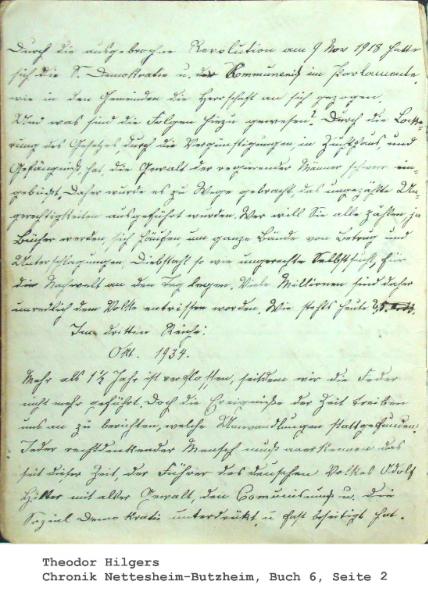 Durch die ausgebrochne Revolution am 9 Nov 1918 hatte
sich die S. Demokratie u. der Kommunens im Parlamente,
wie in den Gemeinden die Herrschaft an sich gezogen.
Und was sind die Folgen hierzu gewesen? Durch die Locke-
rung des Gesetzes durch die Vergünstigungen, in Zuchthaus und
Gefängniß, hat die Gewalt der regierender Männer schwer ein-
gebüßt. Daher wurde es zu Wege gebracht, das ungezählte Un-
gerechtigkeiten ausgeführt wurden. Wer will Sie alle zählen, ja
Bücher werden sich häufen um ganze Bände von Betrug und
Unterschlagungen, Diebstahl so wie ungerechte Selbstsucht, für
die Nachwelt an den Tag legen. Viele Millionen sind daher
unredlich dem Volke entrissen worden. Wie stehts heute
Im dritten Reiche:
Okt. 1934.
Mehr als 1½ Jahr ist verflossen, seitdem wir die Feder
nicht mehr geführt. Doch die Ereigniße der Zeit treiben
uns an zu berichten, welche Umwandlungen stattgefunden.
Jeder rechtdenkender Mensch muß anerkennen das
seit dieser Zeit, der Führer des deutschen Volkes Adolf
Hitler mit aller Gewalt, den Comunismus u. Die
Sozial Demokratie unterdrükt u fast beseitigt hat.
Theodor Hilgers
Chronik Nettesheim-Butzheim, Buch 6, Seite 2